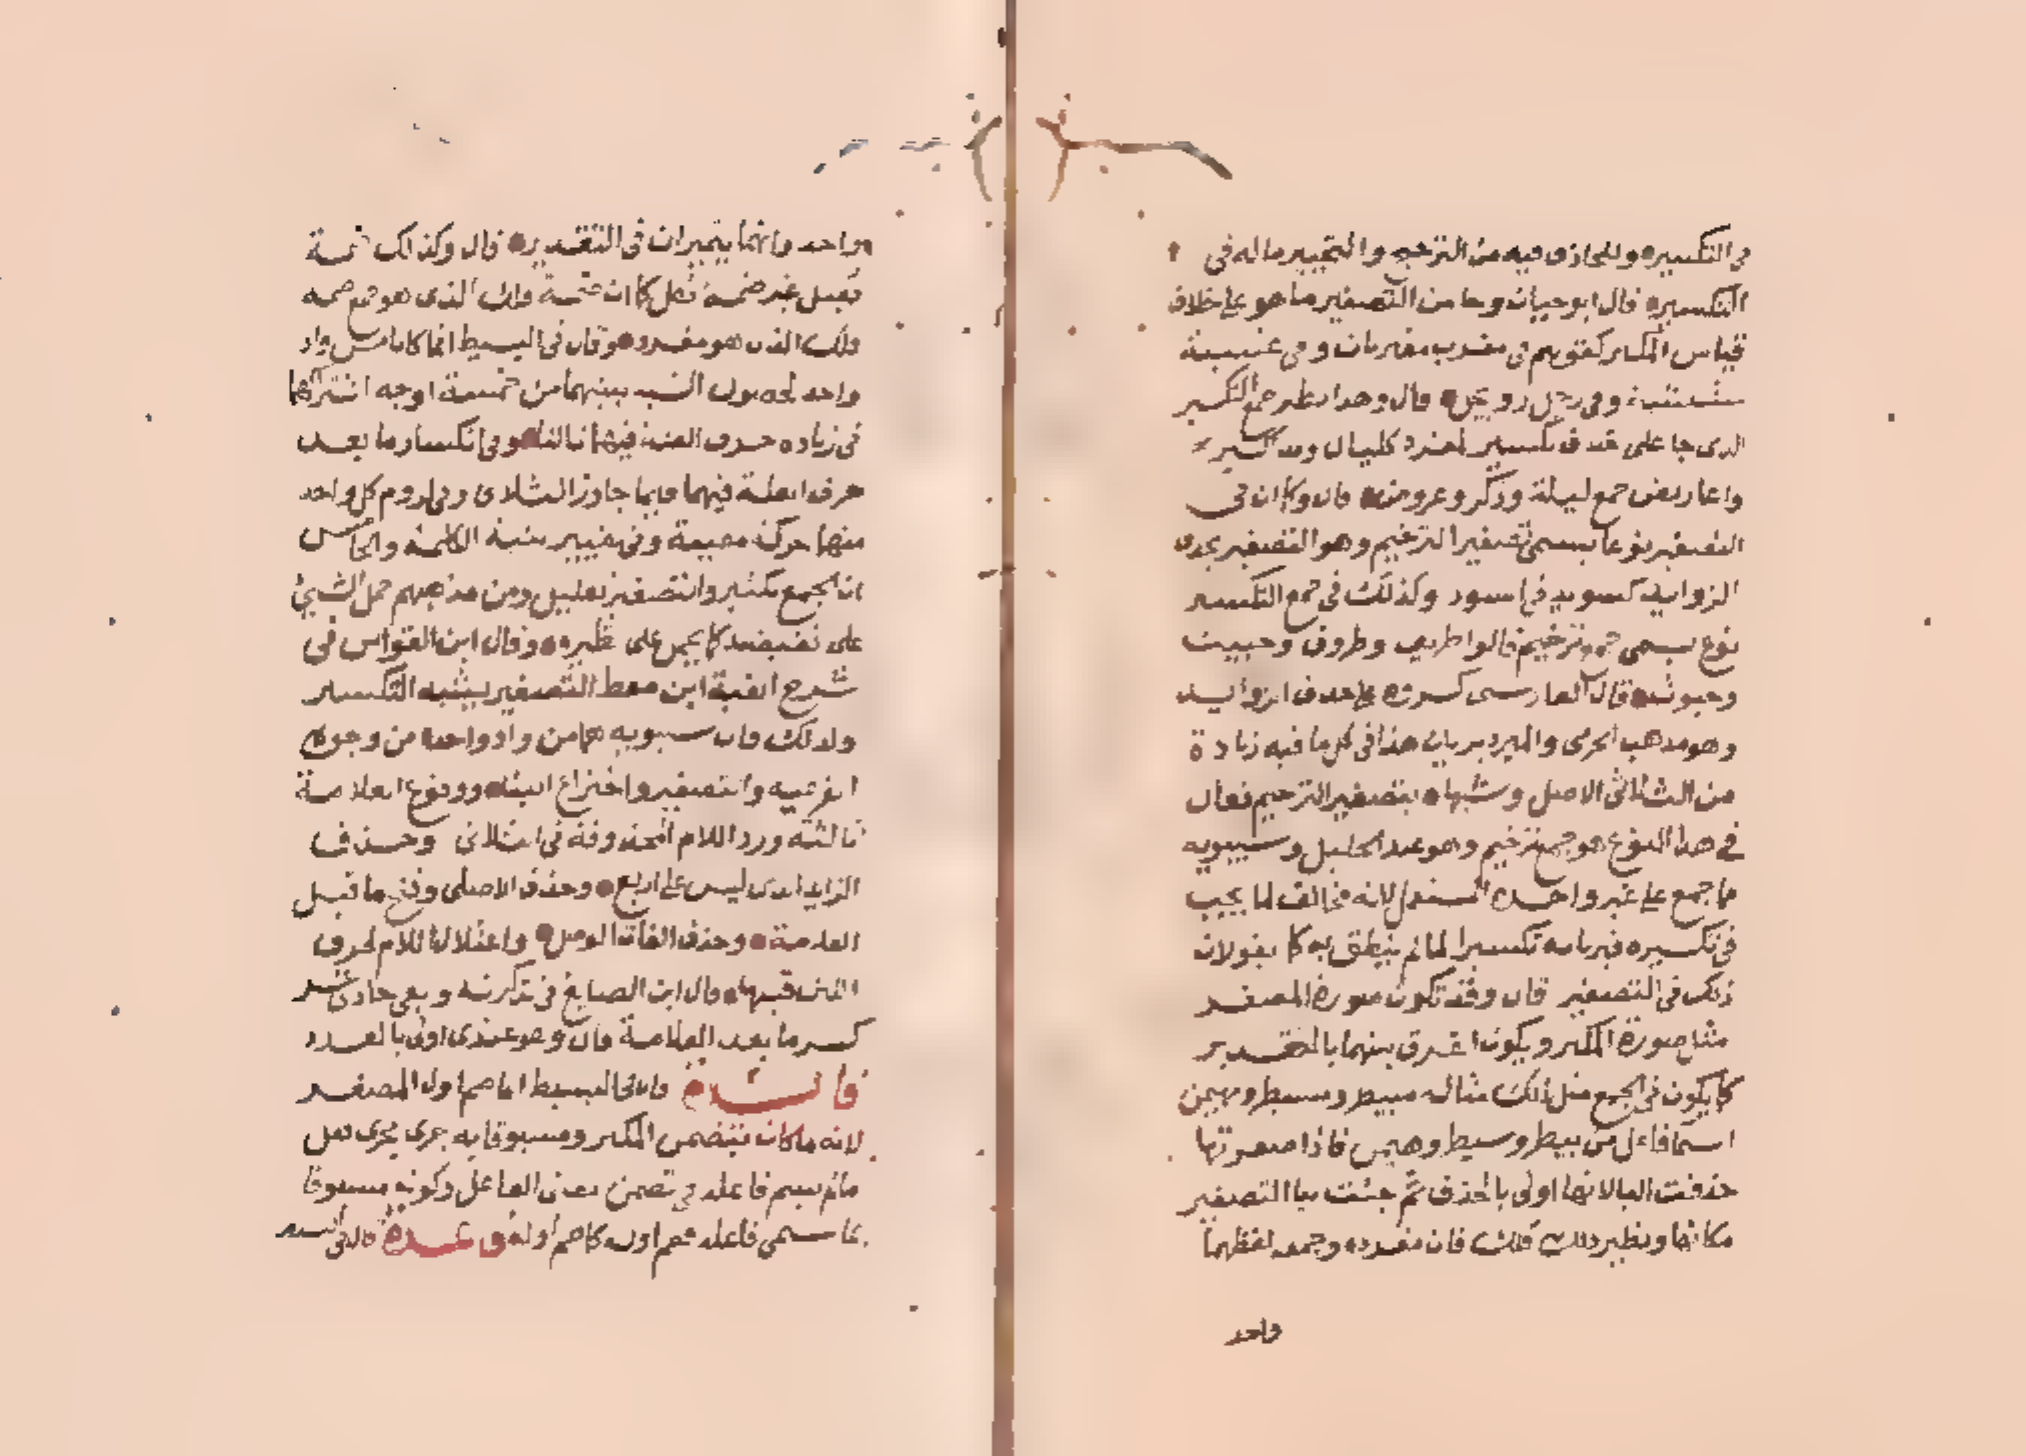 في التكسير وللحاذق فيه من الترجيح والتخيير ما له في
التكسير قال ابو حيان وجا من التصغير ما هو على خلاف
قياس المكبر كقولهم في مغرب مغيربان وفي عشية
عشيشية وفي رجل رويجل قال وهذا نظير جمع التكسير
الذي جا على غير تكسير المفرد كليال ومذاكير
واعاريض جمع ليلة وذكر وعروض قال وكما ان في
التصغير نوعا يسمى تصغير الترخيم وهو التصغير بحذف
الزوايد كسويد في اسود وكذلك في جمع التكسير
نوع يسمى جمع ترخيم قالوا ظريف وظروف وخبيث
وخبوث قال الفارسي كسروه على حذف الزوايد
وهو مذهب الجرمي والمبرد يريان هذا في كل ما فيه زيادة
من الثلاثي الاصل وشبهاه بتصغير الترخيم فقال
في هذا النوع هو جمع ترخيم وهو عند الخليل وسيبويه
مما جمع على غير واحده المستعمل لانه مخالف لما يجب
في تكسيره فيريانه تكسيرا لما لم ينطق به كما يقولان
ذلك في التصغير قال وقد تكون صورة المصغر
مثل صورة المكبر ويكون الفرق بينهما بالتقدير
كما يكون في الجمع مثل ذلك مثاله مبيطر ومسيطر ومهيمن
اسما فاعل من بيطر وسيطر وهيمن فاذا صغرتها
حذفت اليا لانها اولى بالحذف ثم جئت بيا التصغير
مكانها ونظير ذلك فلك فان مفرده وجمعه لفظهما
واحد
واحد وانما يتميزان في التقدير قال وكذلك ضمة
فعيل غير ضمة فعل كما ان ضمة فلك الذي هو جمع ضمة
فلك الذي هو مفرد وقال في البسيط انما كانا من واد
واحد لحصول الشبه بينهما من خمسة اوجه اشتراكهما
في زيادة حرف العلة فيهما ثالثا وفي انكسار ما بعد
حرف العلة فيهما فيما جاوز الثلاثي وفي لزوم كل واحد
منهما حركة معينة وفي تغيير بنية الكلمة والخامس
ان الجمع تكثير والتصغير تقليل ومن مذهبهم حمل الشيئ
على نقيضه كما يحمل على نظيره وقال ابن القواس في
شرح الفية ابن معط التصغير يشبه التكسير
ولذلك قال سيبويه هما من واد واحد من وجوه
الفرعية والتصغير واختراع البنا ووقوع العلامة
ثالثة ورد اللام المحذوفة في الثلاثي وحذف
الزايد الذي ليس على اربع وحذف الاصلي وفتح ما قبل
العلامة وحذف الفات الوصل واعتلال اللام لحرف
اللين قبلها وقال ابن الصايغ في تذكرته وبقي حادي عشر
كسر ما بعد العلامة قال وهو عندي اولى بالعدد
فايدة قال في البسيط انما ضم اول المصغر
لانه لما كان يتضمن المكبر ومسبوقا به جرى مجرى فعل
ما لم يسم فاعله في تضمن معنى الفاعل وكونه مسبوقا
بما سمي فاعله فضم اوله كما ضم اوله قاعدة قال في